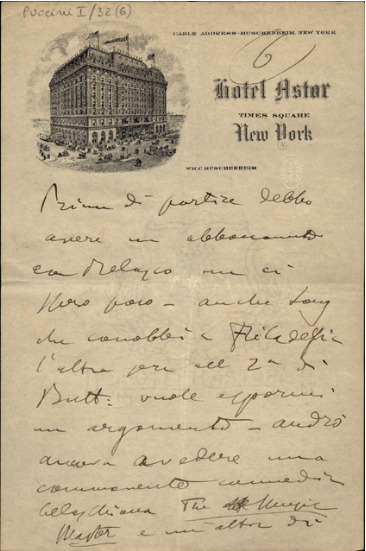 Puccini I/32(6)
CABLE ADDRESS-MUSCHENHEIM, NEW YORK
6
Hotel Astor
TIMES SQUARE
New York
WM C. MUSCHENHEIM
Prima di partire debbo
avere un abboccamento
con Belasco ma ci
spero poco – anche Long
che conobbi a Filadelfia
l'altra sera all 2a di
Butt: vuole espormi
un argomento – andrò
ancora a vedere una
commovente commedia
belaschiana The Music
Master e un'altra di